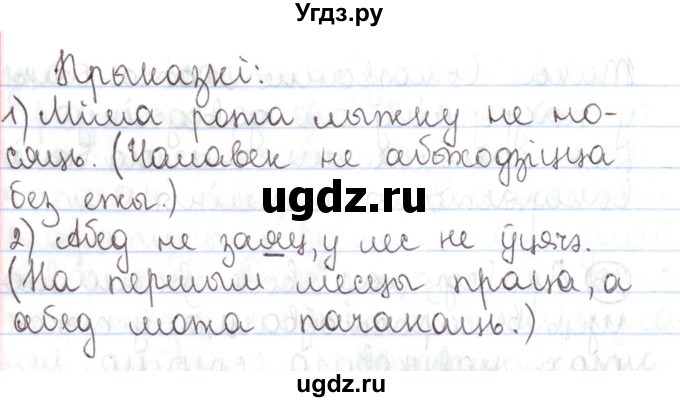 Угдз.ру
Прыказкі:
1) Міма рота лыжку не но-
сяць. (Чалавек не абыходзіцца
без ежы.)
ugdz.ru
2) Абед не заяц, у лес не ўцячэ.
(На першым месцы праца, а
абед можа пачакаць.)
ugdz.ru